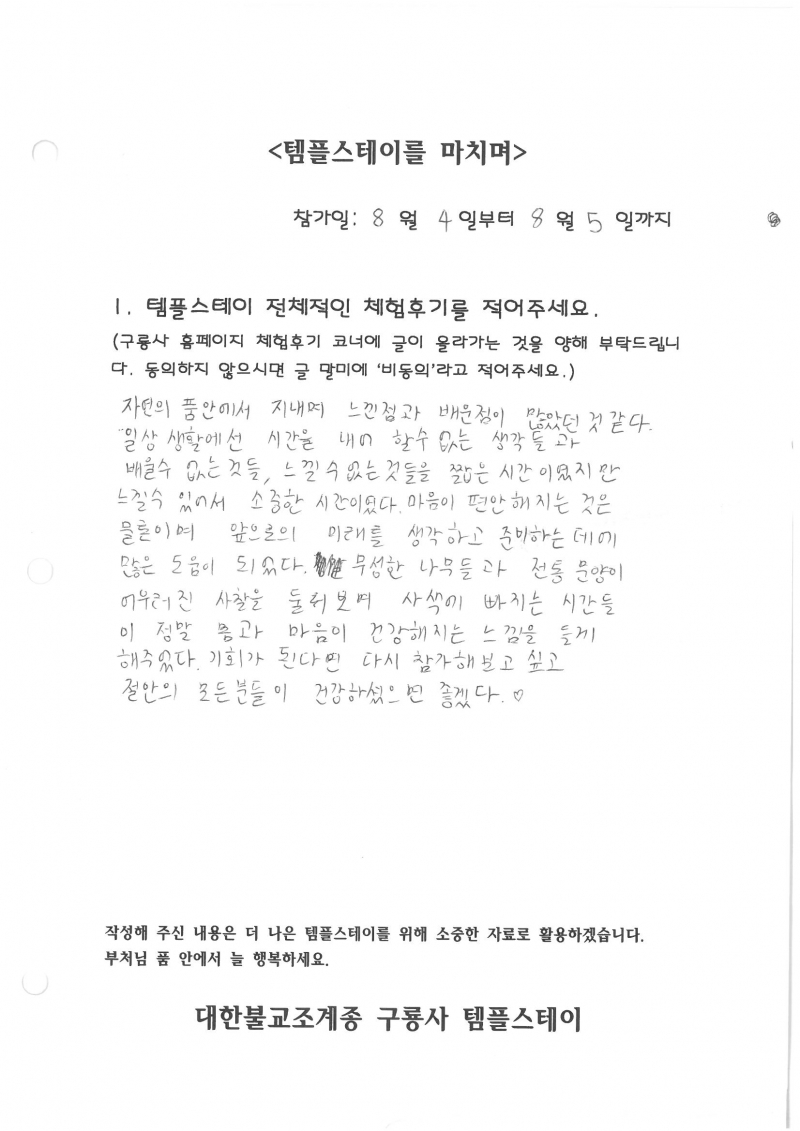 <템플스테이를 마치며>
참가일: 8 월 4 일부터 8 월 5 일까지
1. 템플스테이 전체적인 체험후기를 적어주세요.
(구룡사 홈페이지 체험후기 코너에 글이 올라가는 것을 양해 부탁드립니
다. 동의하지 않으시면 글 말미에 '비동의'라고 적어주세요.)
자연의 품안에서 지내며 느낀점과 배운점이 많았던 것 같다.
일상 생활에선 시간을 내어 할수 없는 생각들과
배울수 없는것들, 느낄 수 없는것들을 짧은 시간이였지만
느낄수 있어서 소중한 시간이였다. 마음이 편안해지는 것은
물론이며 앞으로의 미래를 생각하고 준비하는 데에
많은 도움이 되었다. 무성한 나무들과 전통 문양이
어우러진 사찰을 둘러보며 사색에 빠지는 시간들
이 정말 몸과 마음이 건강해지는 느낌을 들게
해주었다. 기회가 된다면 다시 참가해보고 싶고
절안의 모든분들이 건강하셨으면 좋겠다. ♡
작성해 주신 내용은 더 나은 템플스테이를 위해 소중한 자료로 활용하겠습니다.
부처님 품 안에서 늘 행복하세요.
대한불교조계종 구룡사 템플스테이